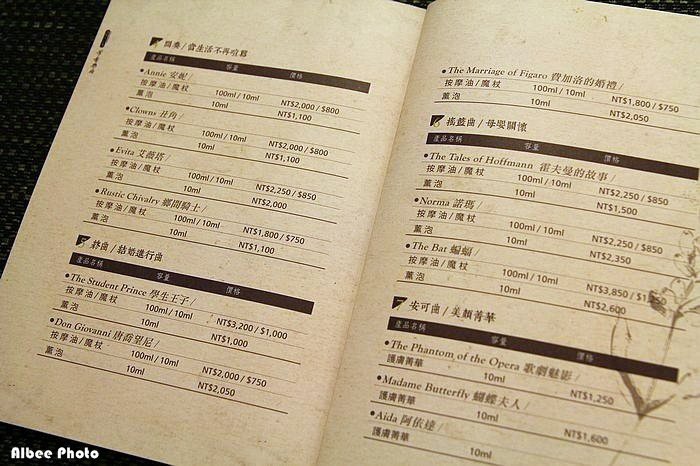 間奏 / 當生活不再喧囂
產品名稱 容量 價格
•Annie 安妮 /
按摩油/魔杖 100ml / 10ml NT$2,000 / $800
薰泡 10ml NT$1,100
•Clowns 丑角 /
按摩油/魔杖 100ml / 10ml NT$2,000 / $800
薰泡 10ml NT$1,100
•Evita 艾薇塔 /
按摩油/魔杖 100ml / 10ml NT$2,250 / $850
薰泡 10ml NT$2,000
•Rustic Chivalry 鄉間騎士 /
按摩油/魔杖 100ml / 10ml NT$1,800 / $750
薰泡 10ml NT$1,100
5 終曲 / 結婚進行曲
產品名稱 容量 價格
•The Student Prince 學生王子 /
按摩油/魔杖 100ml / 10ml NT$3,200 / $1,000
薰泡 10ml NT$1,000
•Don Giovanni 唐喬望尼 /
按摩油/魔杖 100ml / 10ml NT$2,000 / $750
薰泡 10ml NT$2,050
•The Marriage of Figaro 費加洛的婚禮 /
按摩油/魔杖 100ml / 10ml NT$1,800 / $750
薰泡 10ml NT$2,050
6 搖籃曲 / 母嬰關懷
產品名稱 容量 價格
•The Tales of Hoffmann 霍夫曼的故事 /
按摩油/魔杖 100ml / 10ml NT$2,250 / $850
薰泡 10ml NT$1,500
•Norma 諾瑪 /
按摩油/魔杖 100ml / 10ml NT$2,250 / $850
薰泡 10ml NT$2,350
•The Bat 蝙蝠 /
按摩油/魔杖 100ml / 10ml NT$3,850 /
薰泡 10ml NT$2,600
7 安可曲 / 美顏菁華
產品名稱 容量 價格
•The Phantom of the Opera 歌劇魅影 /
護膚菁華 10ml NT$1,250
•Madame Butterfly 蝴蝶夫人 /
護膚菁華 10ml NT$1,600
•Aida 阿依達 /
護膚菁華 10ml
Albee Photo